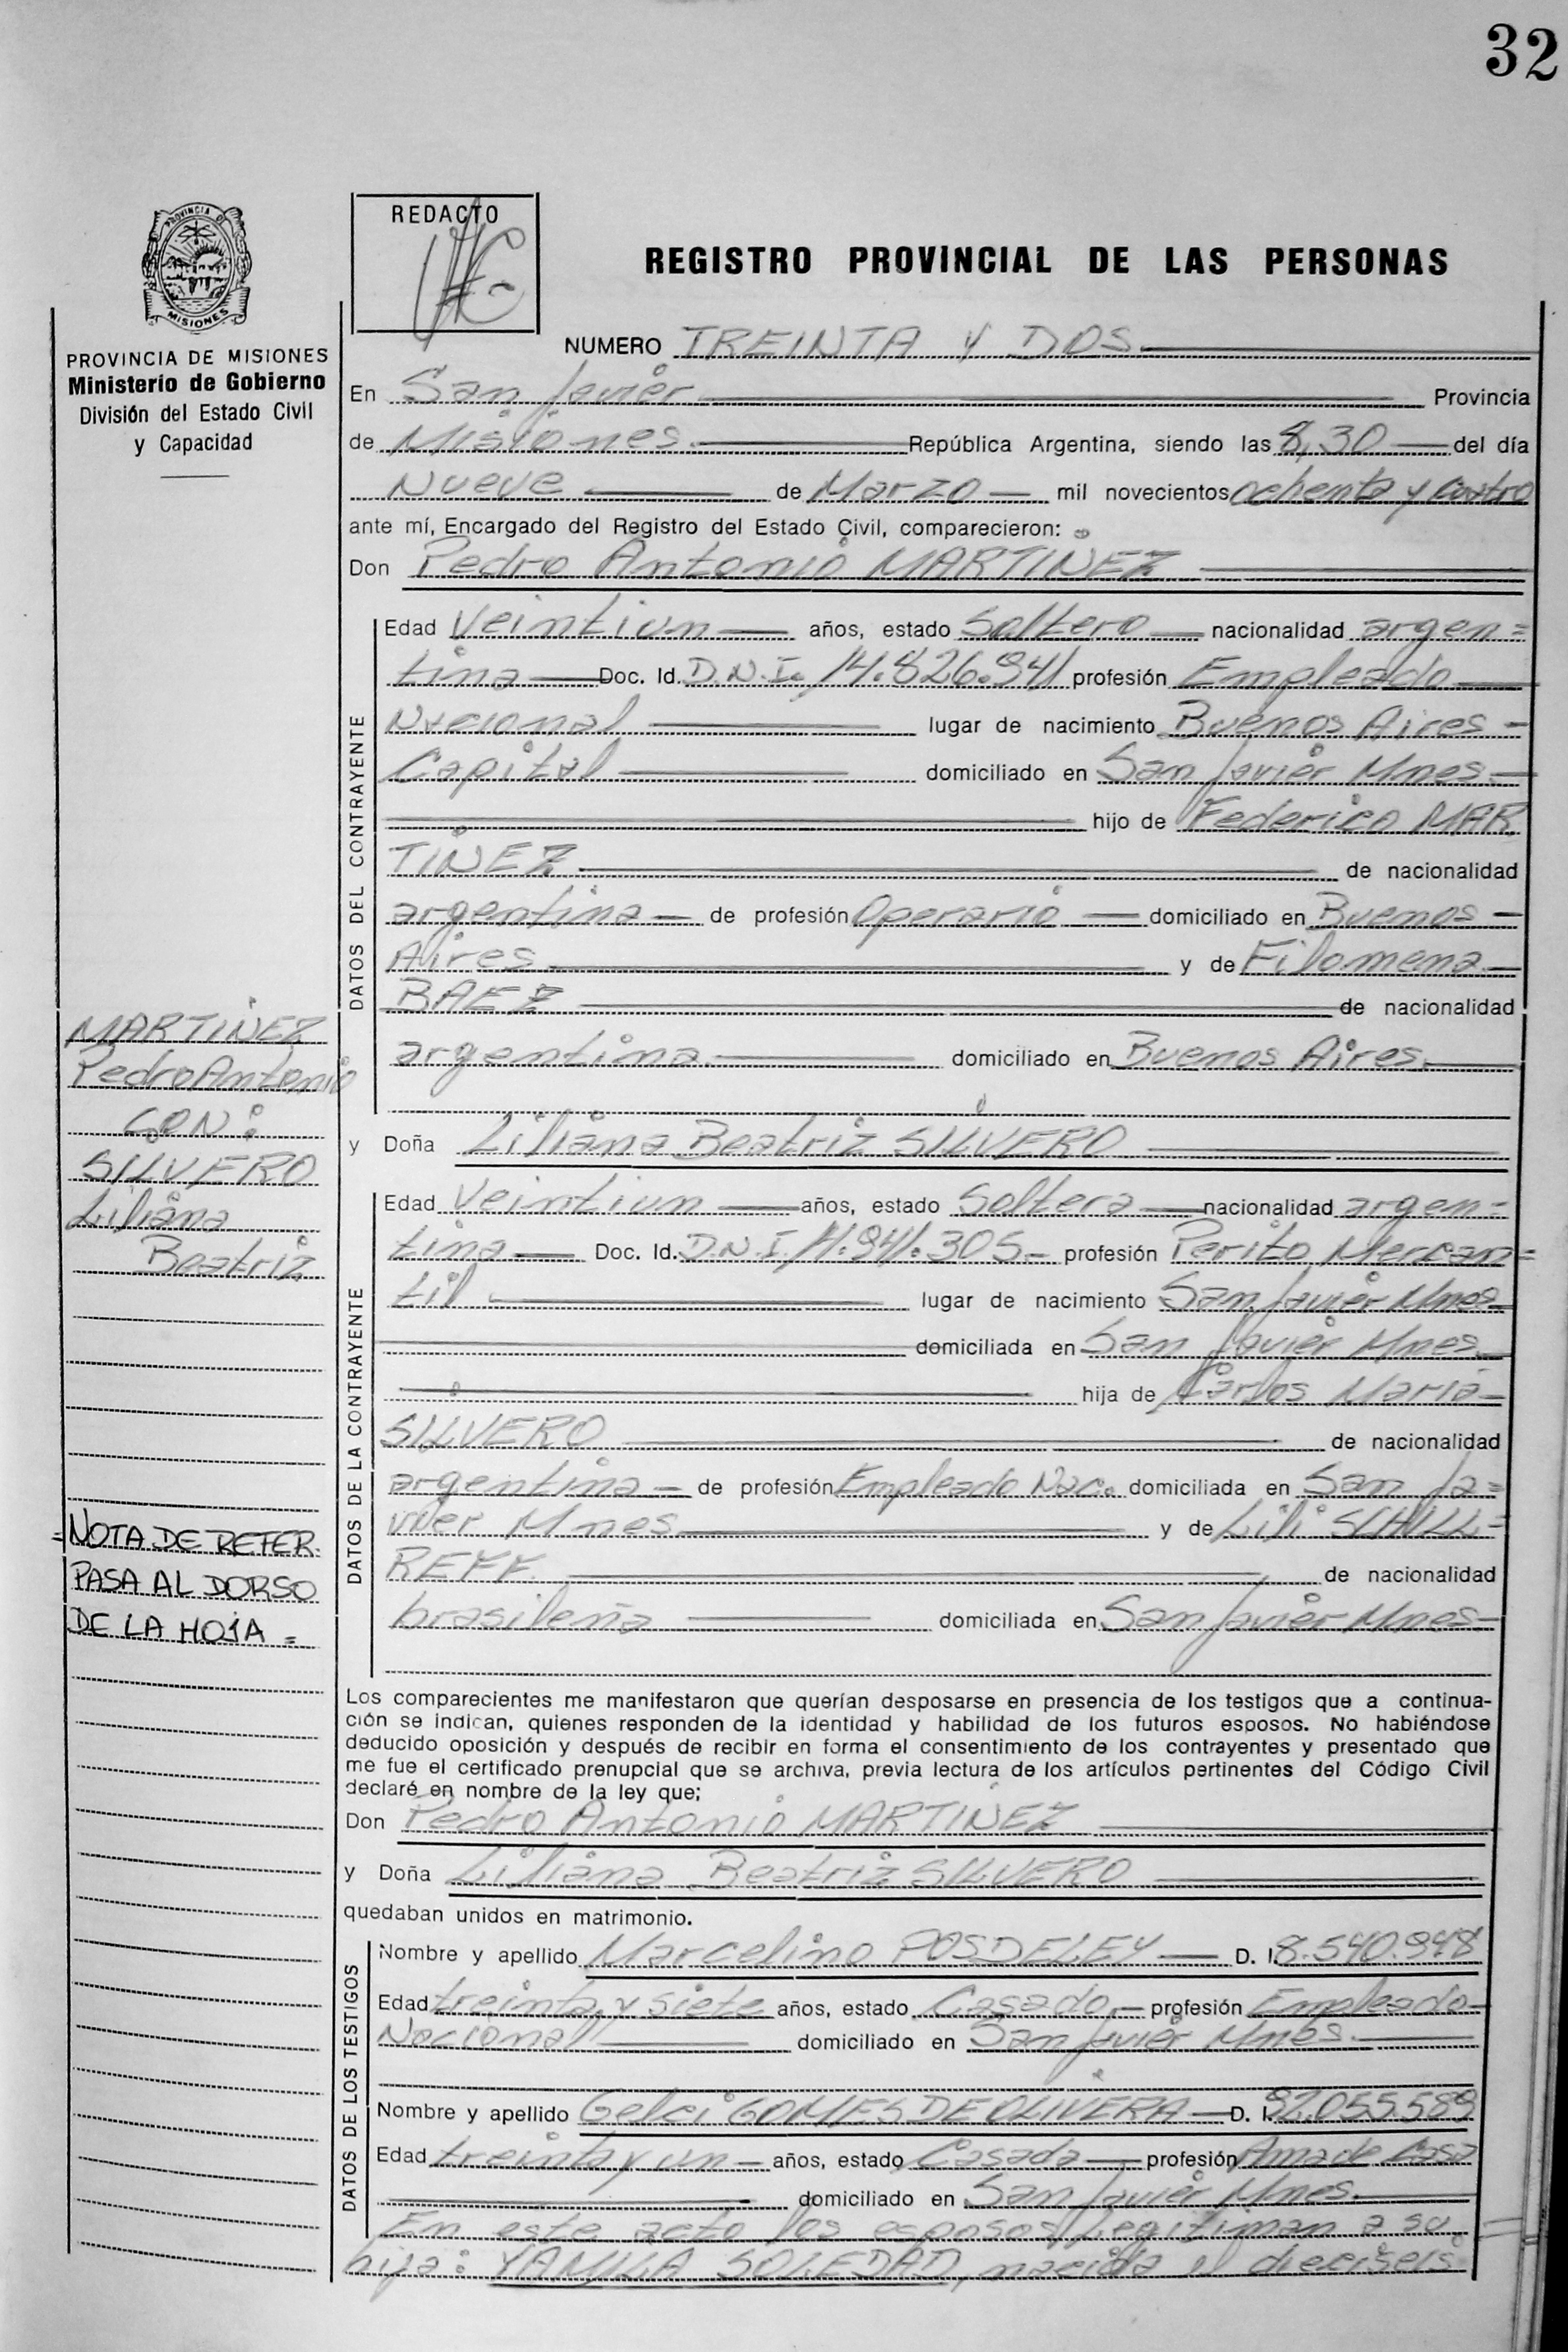 32
PROVINCIA DE
MISIONES
REDACTO
REGISTRO PROVINCIAL DE LAS PERSONAS
PROVINCIA DE MISIONES
Ministerio de Gobierno
División del Estado Civil
y Capacidad
NUMERO TREINTA Y DOS
En San Javier Provincia
de Misiones. República Argentina, siendo las 8,30 del día
Nueve de Marzo mil novecientos ochenta y cuatro
ante mí, Encargado del Registro del Estado Civil, comparecieron:
Don Pedro Antonio MARTINEZ
DATOS DEL CONTRAYENTE
Edad Veintiun años, estado Soltero nacionalidad argen=
tina Doc. Id. D.N.I. 14.826.941 profesión Empleado
Nacional lugar de nacimiento Buenos Aires -
Capital domiciliado en San Javier Mnes.
hijo de Federico MAR
TINEZ de nacionalidad
argentina de profesión Operario domiciliado en Buenos
Aires y de Filomena
BAEZ de nacionalidad
argentina. domiciliado en Buenos Aires.
MARTINEZ
Pedro Antonio
CON:
SILVERO
Liliana
Beatriz
y Doña Liliana Beatriz SILVERO
DATOS DE LA CONTRAYENTE
Edad Veintiun años, estado Soltera nacionalidad argen=
tina Doc. Id. D.N.I. 941.305 profesión Perito Mercan=
til lugar de nacimiento San Javier Mnes
domiciliada en San Javier Mnes
hija de Carlos Maria
SILVERO de nacionalidad
argentina de profesión Empleado Nac. domiciliada en San Ja=
vier Mnes y de Lili SCHILL=
REFF. de nacionalidad
brasileña domiciliada en San Javier Mnes
=NOTA DE REFER.
PASA AL DORSO
DE LA HOJA =
Los comparecientes me manifestaron que querían desposarse en presencia de los testigos que a continua-
ción se indican, quienes responden de la identidad y habilidad de los futuros esposos. No habiéndose
deducido oposición y después de recibir en forma el consentimiento de los contrayentes y presentado que
me fue el certificado prenupcial que se archiva, previa lectura de los artículos pertinentes del Código Civil
declaré en nombre de la ley que;
Don Pedro Antonio MARTINEZ
y Doña Liliana Beatriz SILVERO
quedaban unidos en matrimonio.
DATOS DE LOS TESTIGOS
Nombre y apellido Marcelino POSDELEY D. I. 8.540.948
Edad treinta y siete años, estado Casado profesión Empleado
Nacional domiciliado en San Javier Mnes.
Nombre y apellido Gelci GOMES DE OLIVERA D. I. 92.055.589
Edad treinta y un años, estado Casada profesión Ama de Casa
domiciliado en San Javier Mnes.
En este acto los esposos Legitiman a su
hija: YAMILA SOLEDAD, nacida el dieciseis